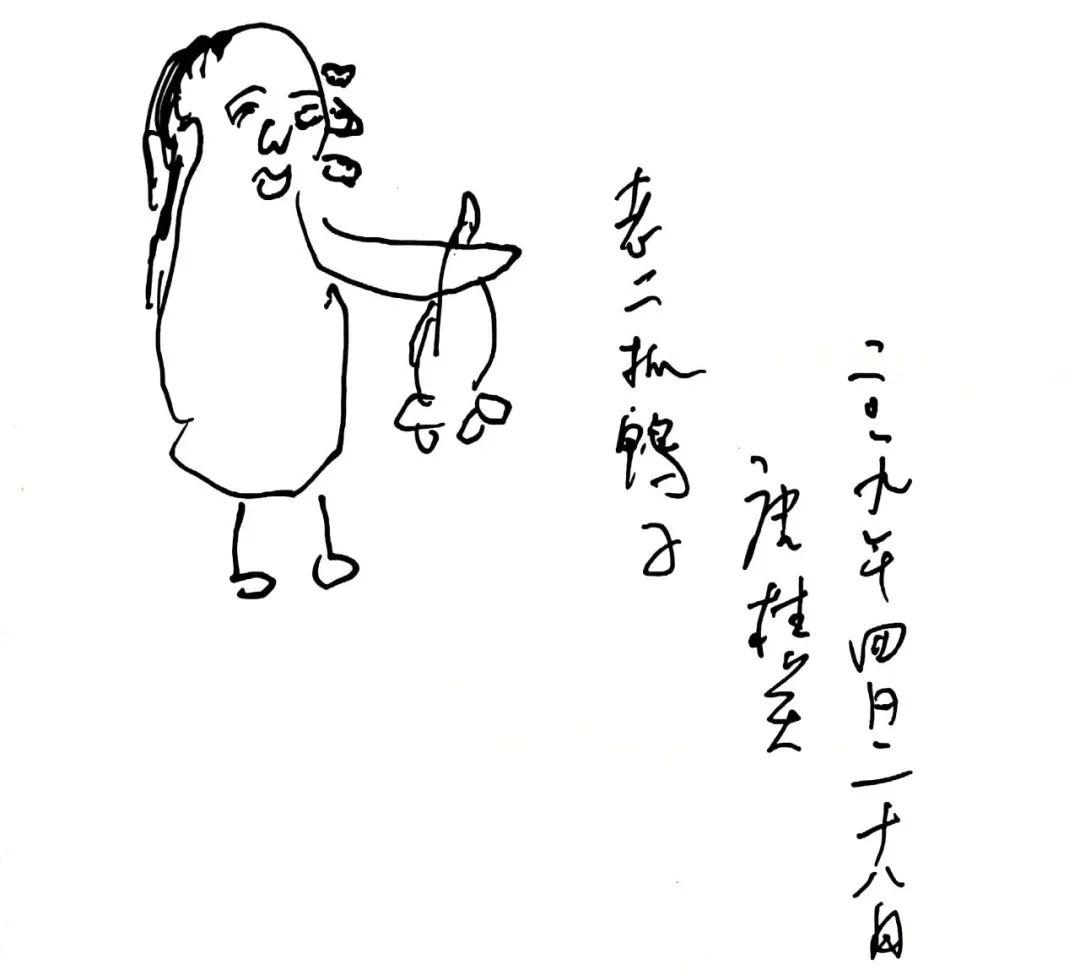 老二抓鸭子
唐桂美
二〇一九年四月二十八日